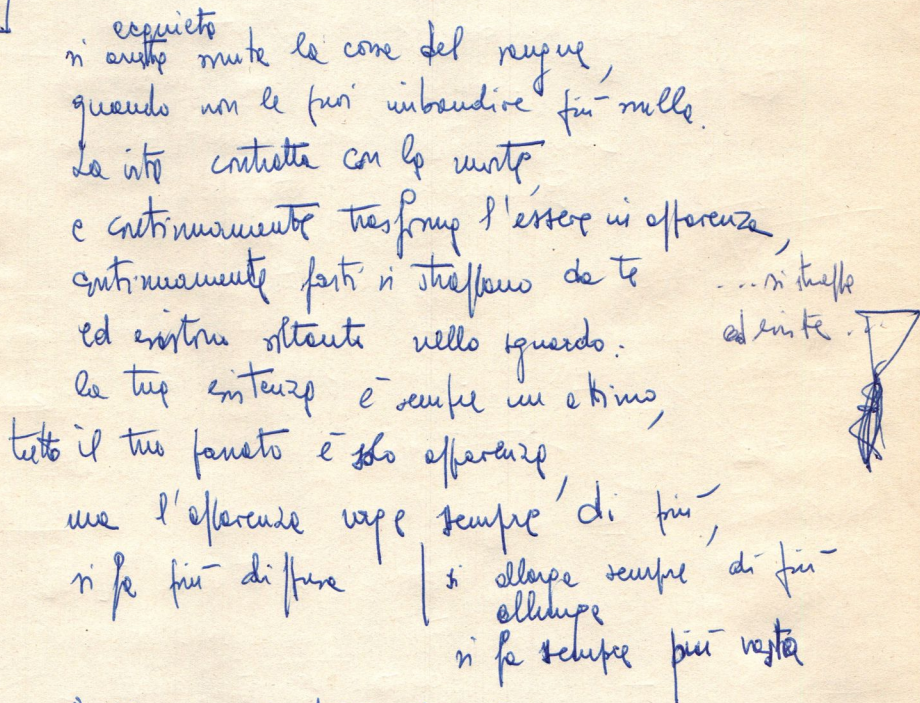 acquieta
si muta la cosa del sangue,
quando non le puoi imbandire più nulla.
La vita contratta con la morte,
e continuamente trasforma l'essere in apparenza,
continuamente parti si strappano da te
ed esistono soltanto nello sguardo:
la tua esistenza è sempre un attimo,
tutto il tuo passato è solo apparenza,
ma l'apparenza urge sempre di più,
si fa più diffusa
si allarga sempre di più
allunga
si fa sempre più vasta
...si strappa
ed esiste...